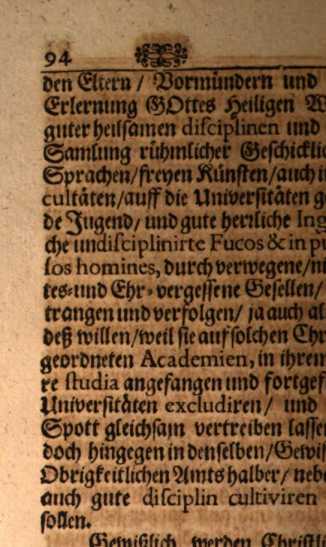 94
den Eltern / Vormündern und
Erlernung GOttes Heiligen W
guter heilsamen disciplinen und
Samlung rühmlicher Geschickli
Sprachen/freyen Künsten/auch i
cultäten/auff die Universitäten g
de Jugend/ und gute herrliche Ing
che undisciplinirte Fucos & in pu
los homines, durch verwegene/ni
tes-und Ehr-vergessene Gesellen/
trangen und verfolgen/ ja auch al
deß willen/weil sie auf solchen Chr
geordneten Academien, in ihren
re studia angefangen und fortgef
Universitäten excludiren/ und
Spott gleichsam vertreiben lassen
doch hingegen in denselben/Gewis
Obrigkeitlichen Amts halber/ neb
auch gute disciplin cultiviren
sollen.
Gewißlich werden Christli